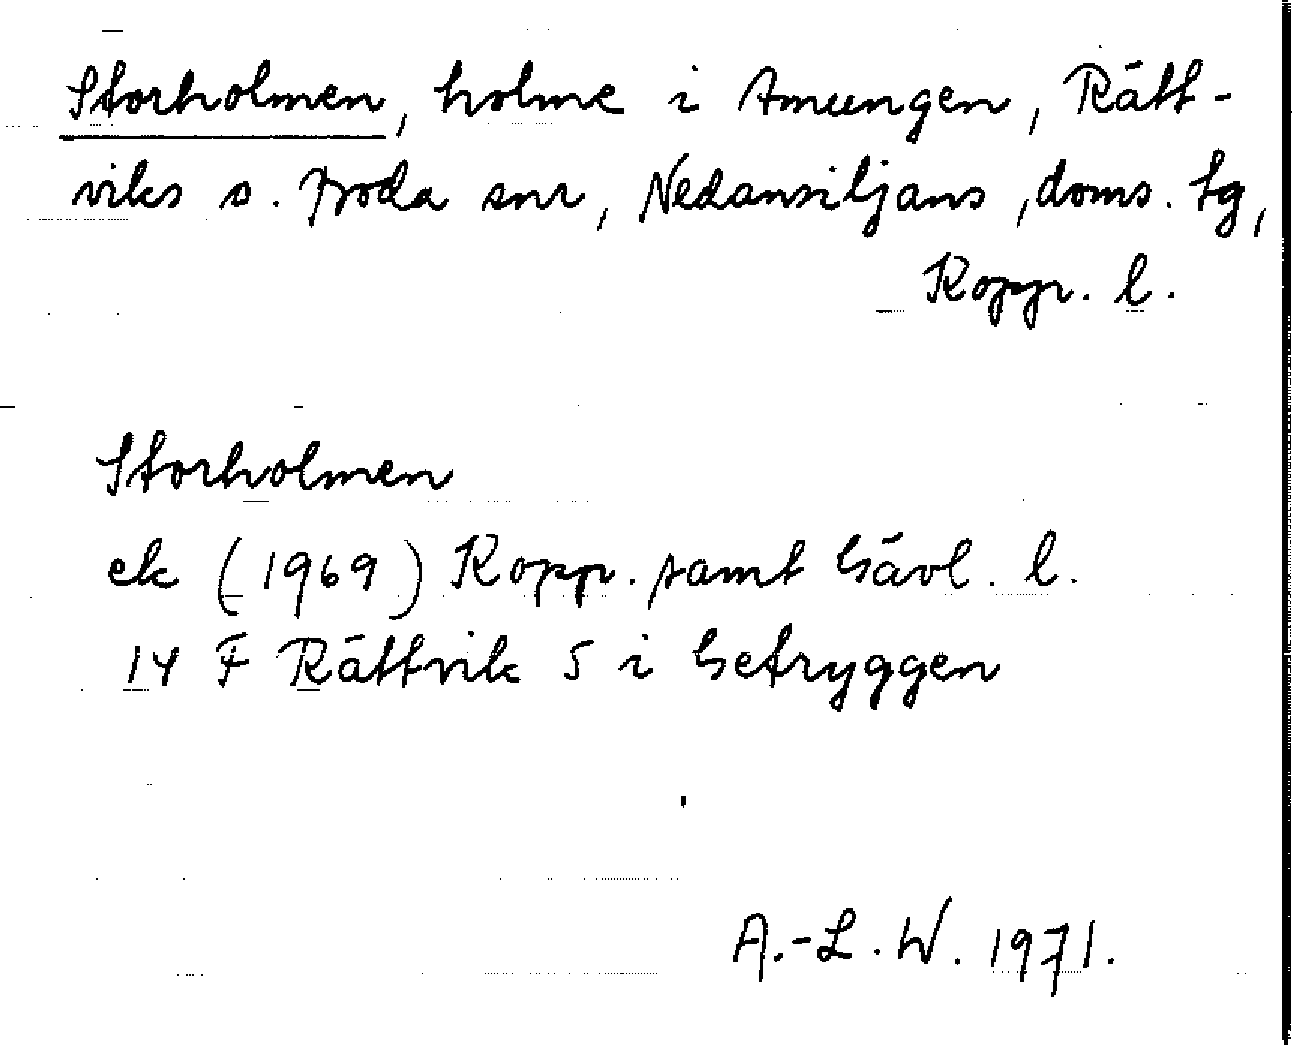 Storholmen, holme i Amungen, Rätt-
viks s. Boda snr, Nedansiljans doms. tg,
Kopp. l.
Storholmen
ek (1969) Kopp. samt Gävl. l.
14 F Rättvik S i Getryggen
A.-L. W. 1971.